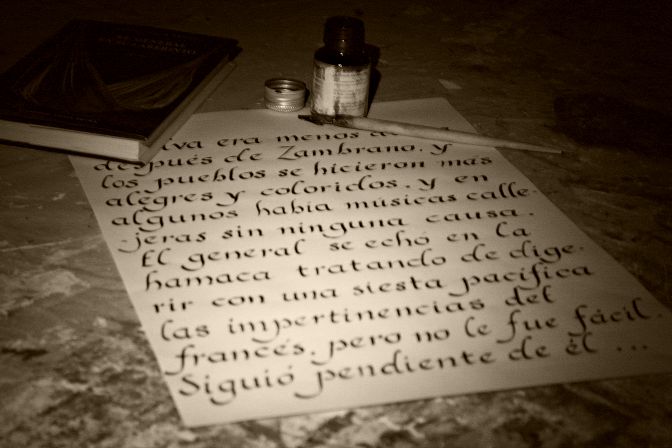 era menos
después de Zambrano, y
los pueblos se hicieron más
alegres y coloridos, y en
algunos había músicas calle-
jeras sin ninguna causa.
El general se echó en la
hamaca tratando de dige-
rir con una siesta pacífica
las impertinencias del
francés, pero no le fue fácil.
Siguió pendiente de él ...